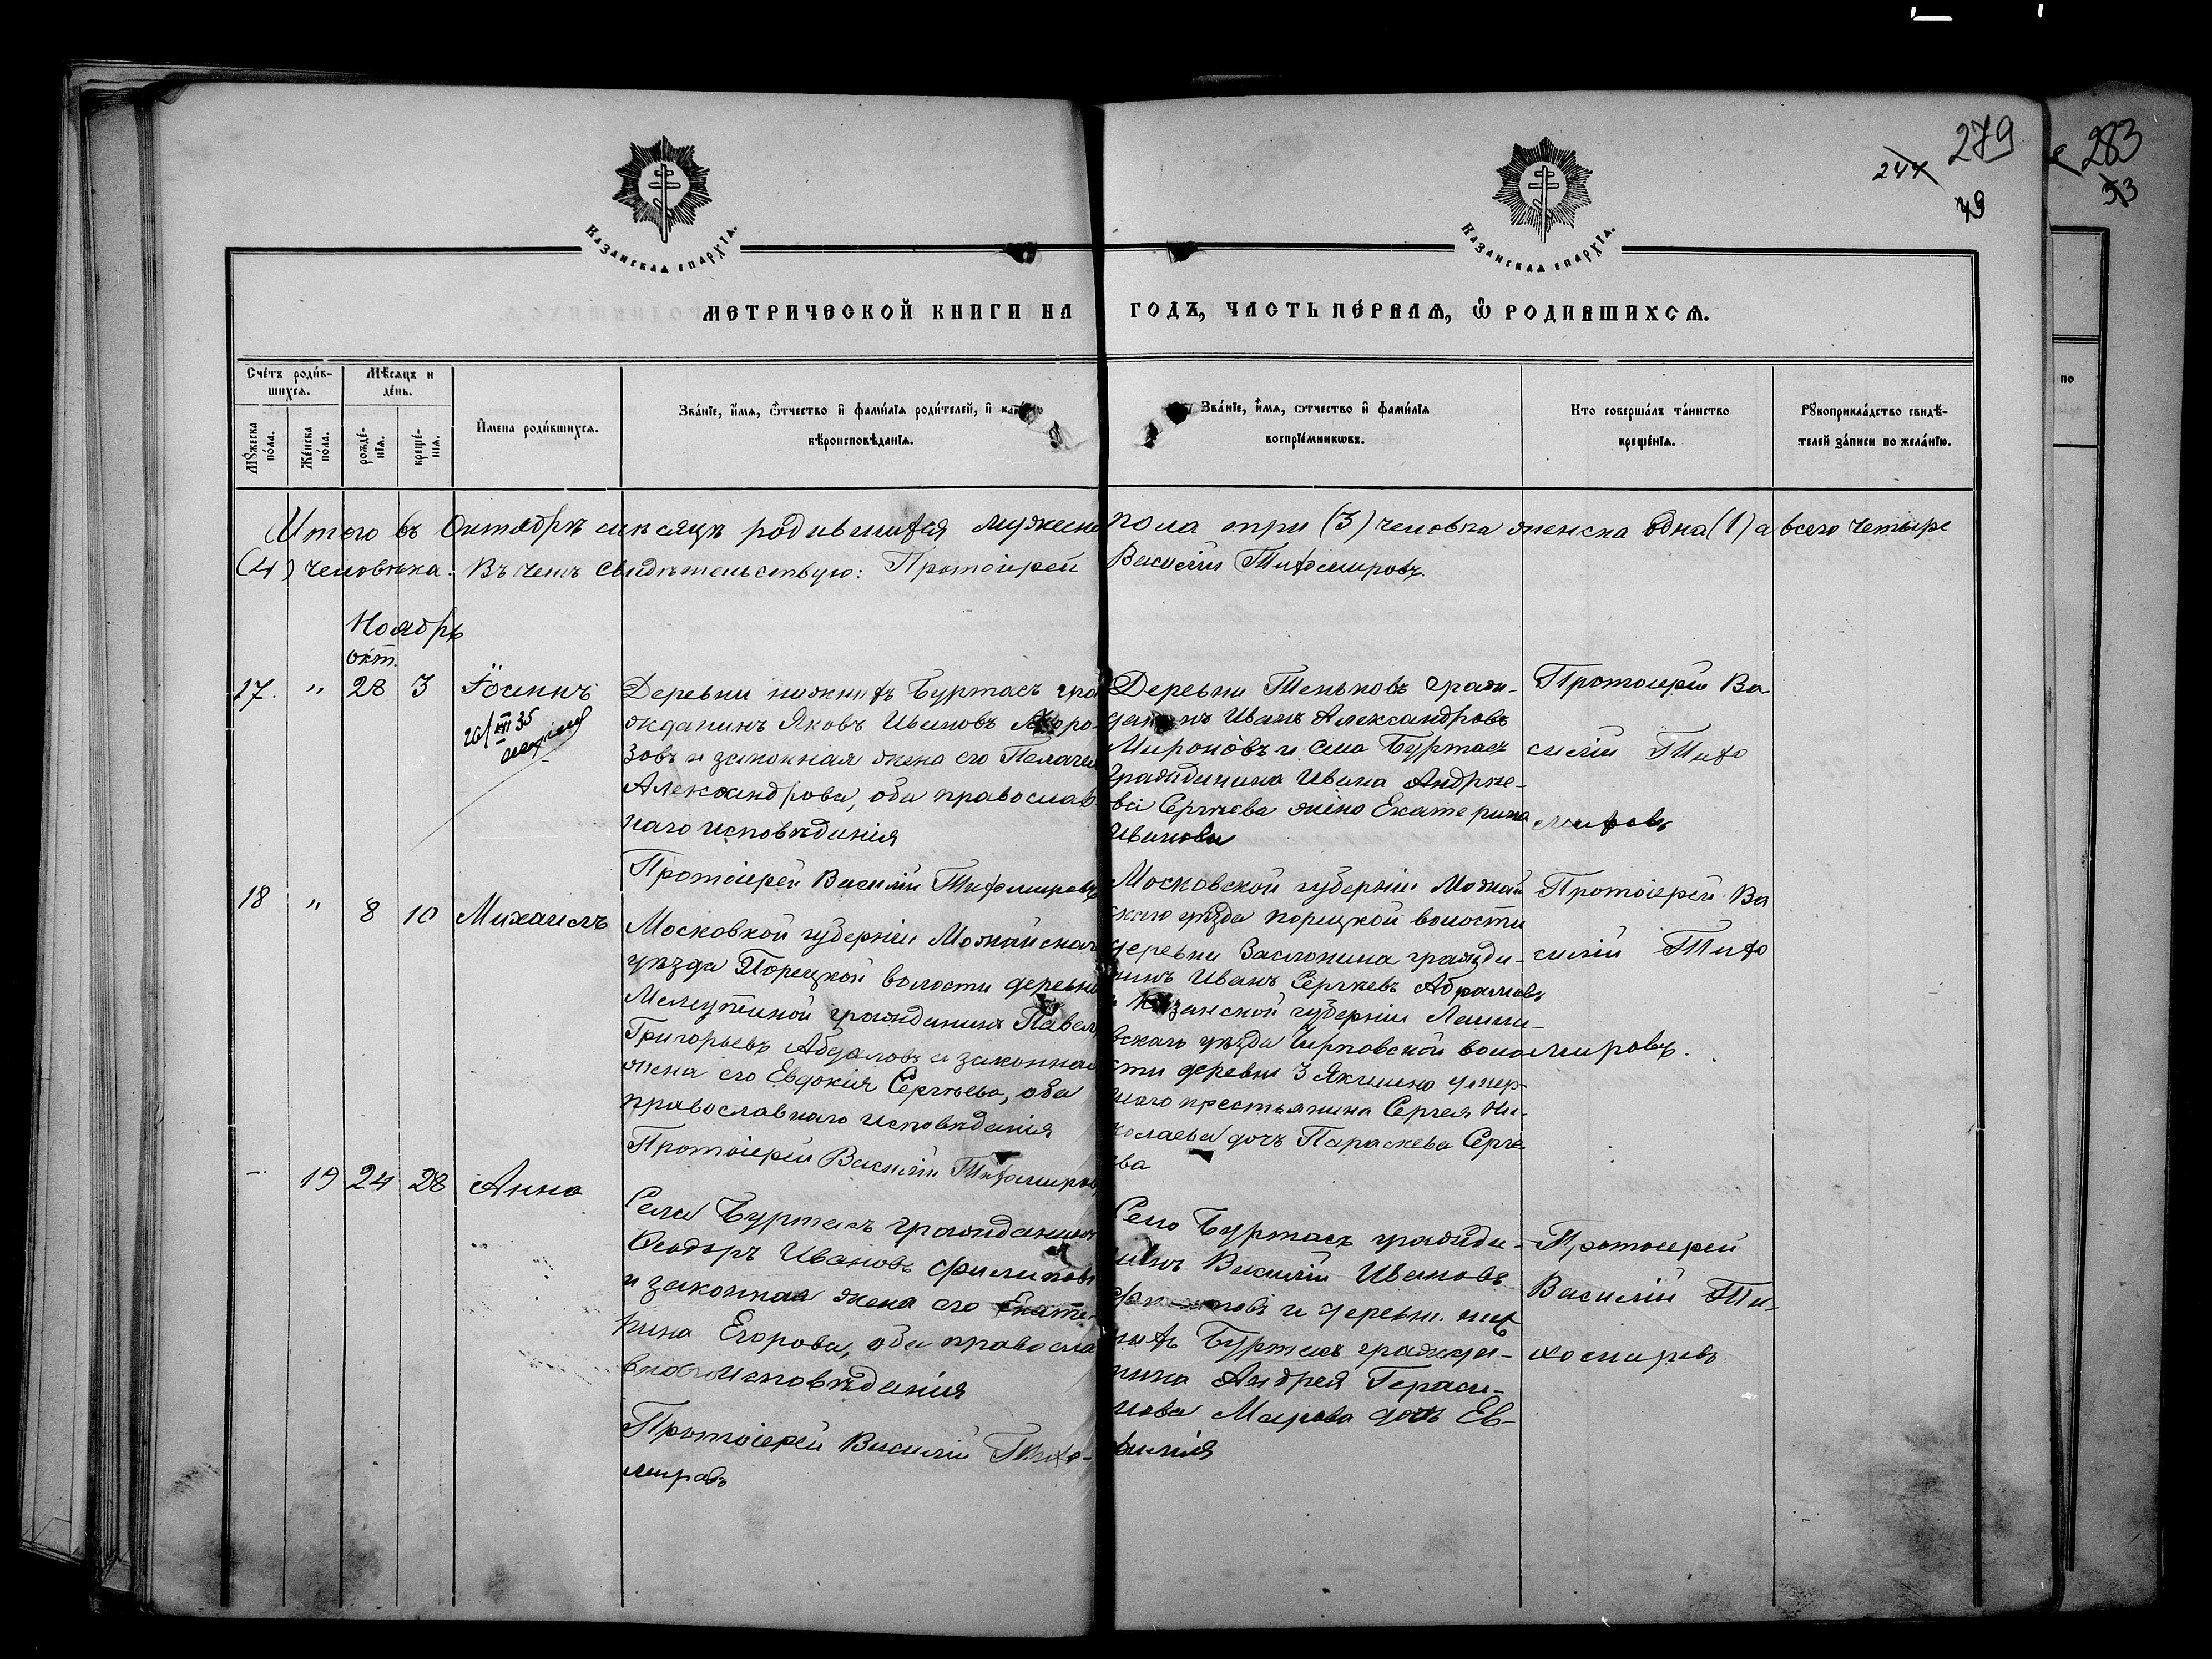 279
244
79
283
53
Казанская епархїа.
Казанская епархїа.
МЕТРИЧЕСКОЙ КНИГИ НА ГОДЪ, ЧАСТЬ ПЕ́РВАѦ, Ѿ РОДИВШИХСѦ.
Сче́тъ роди́в-
шихсѧ.
Мꙋжеска по́ла.
Же́нска по́ла.
Мѣ́сѧцъ и
де́нь.
рожде́-
нїѧ.
креще́-
нїѧ.
Имена роди́вшихсѧ.
Зва́нїе, и́мѧ, ѻ҆́тчество и҆ фами́лїѧ роди́телей, и҆
вѣроисповѣ́данїѧ.
Зва́нїе, и́мѧ, ѻтчество и҆ фами́лїѧ
воспрїе́мникѡвъ.
Кто соверша́лъ та́инство
креще́нїѧ.
Рꙋкоприкла́дство свидѣ́-
телей за́писи по жела́нїю.
по
Итого въ Октябрѣ мѣсяцѣ родившихся мужеска пола три (3) человѣка женска одна (1) а всего четыре
(4) человѣка. Въ чемъ свидѣтельствую: Протоіерей Василій Тихомировъ.
Ноябрь
окт.
17. " 28 3 Іоаннъ
26/VII 35
Деревни нижнихъ Буртасъ гра
жданинъ Яковъ Ивановъ Моро
зовъ и законная жена его Пелагея
Александрова, оба православ
наго исповѣданія
Протоіерей Василій Тихомировъ
Деревни Теньковъ гражд-
Иванъ Александровъ
Мироновъ и села Буртасъ
гражданина Ивана Андрѣе-
ва Сергѣева жена Екатерина
Иванова
Протоіерей Ва
силій Тихо
мировъ
18 " 8 10 Михаилъ
Московской губерніи Можайскаго
уѣзда Порецкой волости деревни
гражданинъ Павелъ
Григорьевъ Абдаловъ и законная
жена его Евдокія Сергѣева, оба
православнаго исповѣданія
Протоіерей Василій Тихомировъ
Московской губерніи Можай
скаго уѣзда порецкой волости
деревни Заслонина гражда-
нинъ Иванъ Сергѣевъ Абрамовъ
и Казанской губерніи Лаише
вскаго уѣзда Чирповской воло
сти деревни
крестьянина Сергея Ни-
колаева дочь Параскева Серге
ева
Протоіерей Ва
силій Тихо
мировъ.
- 19 24 28 Анна
Села Буртасъ гражданинъ
Ѳеодоръ Ивановъ Филиповъ
и законная жена его Екате-
рина Егорова, оба правосла
внаго исповѣданія
Протоіерей Василій Тихо-
мировъ
Село Буртасъ гражда-
нинъ Василій Ивановъ
и деревни ниж
нихъ Буртасъ гражда-
нина Андрея Гераси-
мова дочь Ев-
фимія
Протоіерей
Василій Ти-
хомировъ